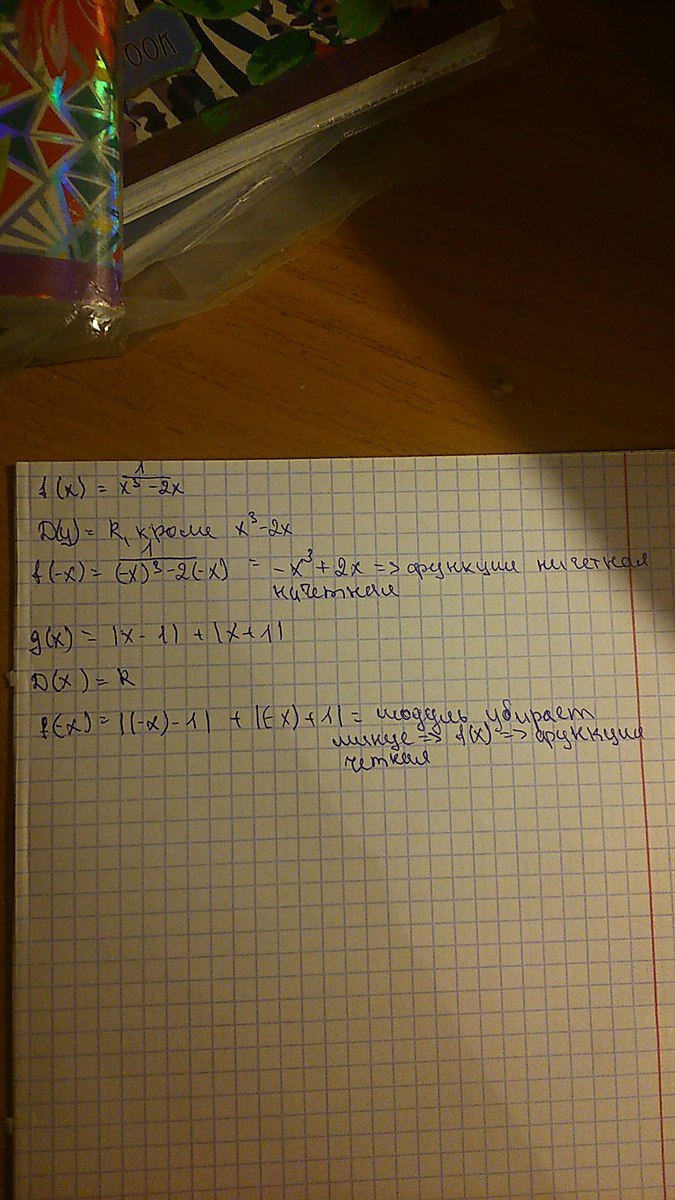 ООК
f(x) = 1/(x³ - 2x)
D(y) = R, кроме x³ - 2x
f(-x) = 1/((-x)³ - 2(-x)) = -x³ + 2x => функции ни четная
ни четная
g(x) = |x - 1| + |x + 1|
D(x) = R
f(-x) = |(-x) - 1| + |(-x) + 1| = модуль убирает
минус => f(x) => функция
четная